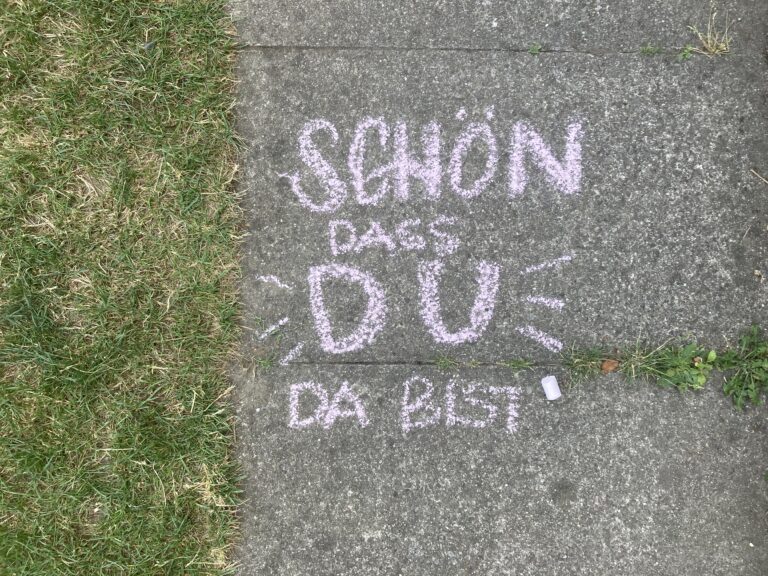 SCHÖN
DASS
DU
DA BIST